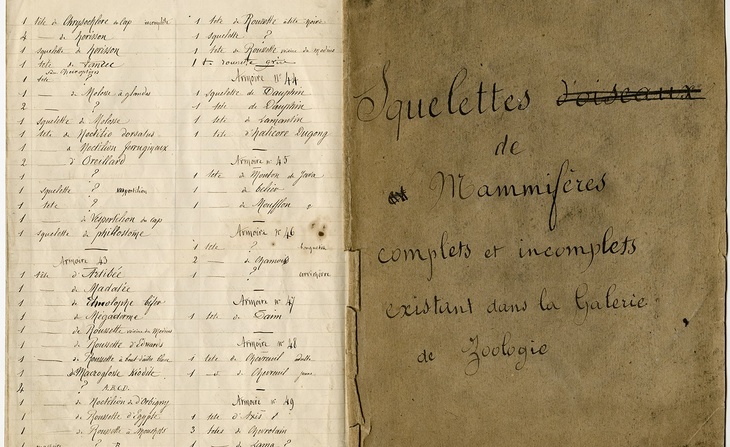 1 tête de Chrysochlore du cap incomplète
4 — de hérisson
1 squelette de hérisson
1 tête de
1 tête
1 — de Molosse à glandes
2 — ?
1 squelette de Molosse
1 tête de Noctilio dorsatus
1 — Noctilion ferrugineux
2 — d'Oreillard
1 ?
1 squelette ?
1 tête ?
1 — de Vespertilion du cap
1 squelette de phillostome
Armoire 43
1 tête d'Artibée
1 — de Madatée
1 — de
1 — de Mégaderme
1 — de Roussette
1 — de Roussette d'Edwards
1 — de Roussette
1 — de Macroglosse Kiodote
4 ? A.B.C.D.
1 — de Noctilion de d'Orbigny
1 — de Roussette d'Egypte
1 — de Roussette à
1 tête de Roussette
1 squelette ?
1 tête de Roussette
1 tête roussette grise
Armoire Nº 44
1 squelette de Dauphin
1 tête de Dauphin
1 tête de Lamantin
1 tête d'halicore Dugong
Armoire Nº 45
1 tête de Mouton de Java
1 — de bélier
1 — de Moufflon
Armoire Nº 46
1 tête ?
2 — de Chamois
1 — ?
Armoire Nº 47
1 tête de Daim
Armoire Nº 48
1 tête de Chevreuil
1 — de Chevreuil
Armoire Nº 49
1 tête d'Axis
3 têtes de Chevrotain
1 — de Lama ?
Squelettes d'oiseaux
de
Mammifères
complets et incomplets
existant dans la Galerie
de Zoologie